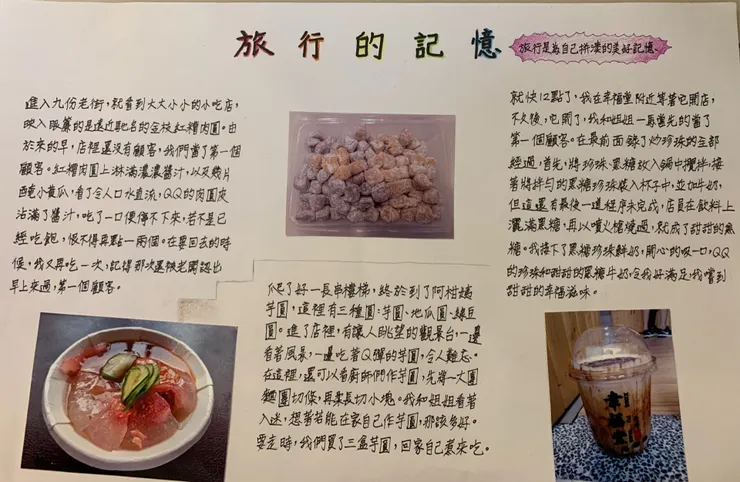 旅行的記憶
旅行是為自己拼湊的美好記憶。
進入九份老街，就看到大大小小的小吃店，
映入眼簾的是遠近馳名的金枝紅糟肉圓。由
於來的早，店裡還沒有顧客，我們當了第一個
顧客。紅糟肉圓上淋滿濃濃醬汁，以及幾片
醃小黃瓜，看了令人口水直流，QQ的肉圓皮
沾滿了醬汁，吃了一口便停不下來，若不是已
經吃飽，恨不得再點一兩個。在要回去的時
候，我又再吃一次，記得那次還被老闆認出
早上來過，第一個顧客。
爬了好一長串樓梯，終於到了阿柑姨
芋圓，這裡有三種圓：芋圓、地瓜圓、綠豆
圓。進了店裡，有讓人眺望的觀景台，一邊
看著風景，一邊吃著Q彈的芋圓，令人難忘。
在這裡，還可以看廚師們作芋圓，先將一大團
麵團切條，再柔長切小塊。我和姐姐看著
入迷，想著若能在家自己作芋圓，那該多好。
要走時，我們買了三盒芋圓，回家自己煮來吃。
就快12點了，我在幸福堂附近等著它開店，
不久後，它開了，我和姐姐一馬當先的當了
第一個顧客。在最前面錄了炒珍珠的全部
經過，首先，將珍珠、黑糖放入鍋中攪拌，接
著將拌勻的黑糖珍珠裝入杯子中，並加牛奶，
但這還有最後一道程序未完成，店員在飲料上
灑滿黑糖，再以噴火槍燒過，就成了甜甜的焦
糖。我接下了黑糖珍珠鮮奶，開心的吸一口，QQ
的珍珠和甜甜的黑糖牛奶令我好滿足，我嘗到
甜甜的幸福滋味。
幸福堂